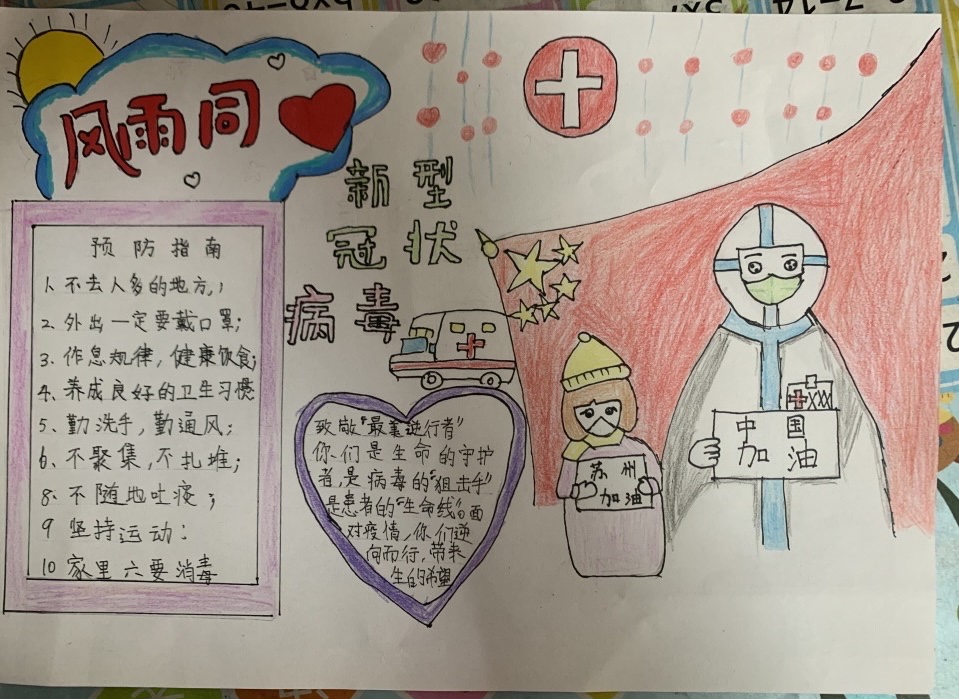 风雨同
新型
冠状
病毒
预防指南
1、不去人多的地方,;
2、外出一定要戴口罩;
3、作息规律,健康饮食;
4、养成良好的卫生习惯
5、勤洗手,勤通风;
6、不聚集,不扎堆;
8、不随地吐痰;
9 坚持运动:
10 家里六要消毒
致敬“最美逆行者”
你们是生命的守护
者,是病毒的“狙击手”
是患者的“生命线”面
对疫情,你们逆
向而行,带来
生的希望
苏州
加油
中国
加油